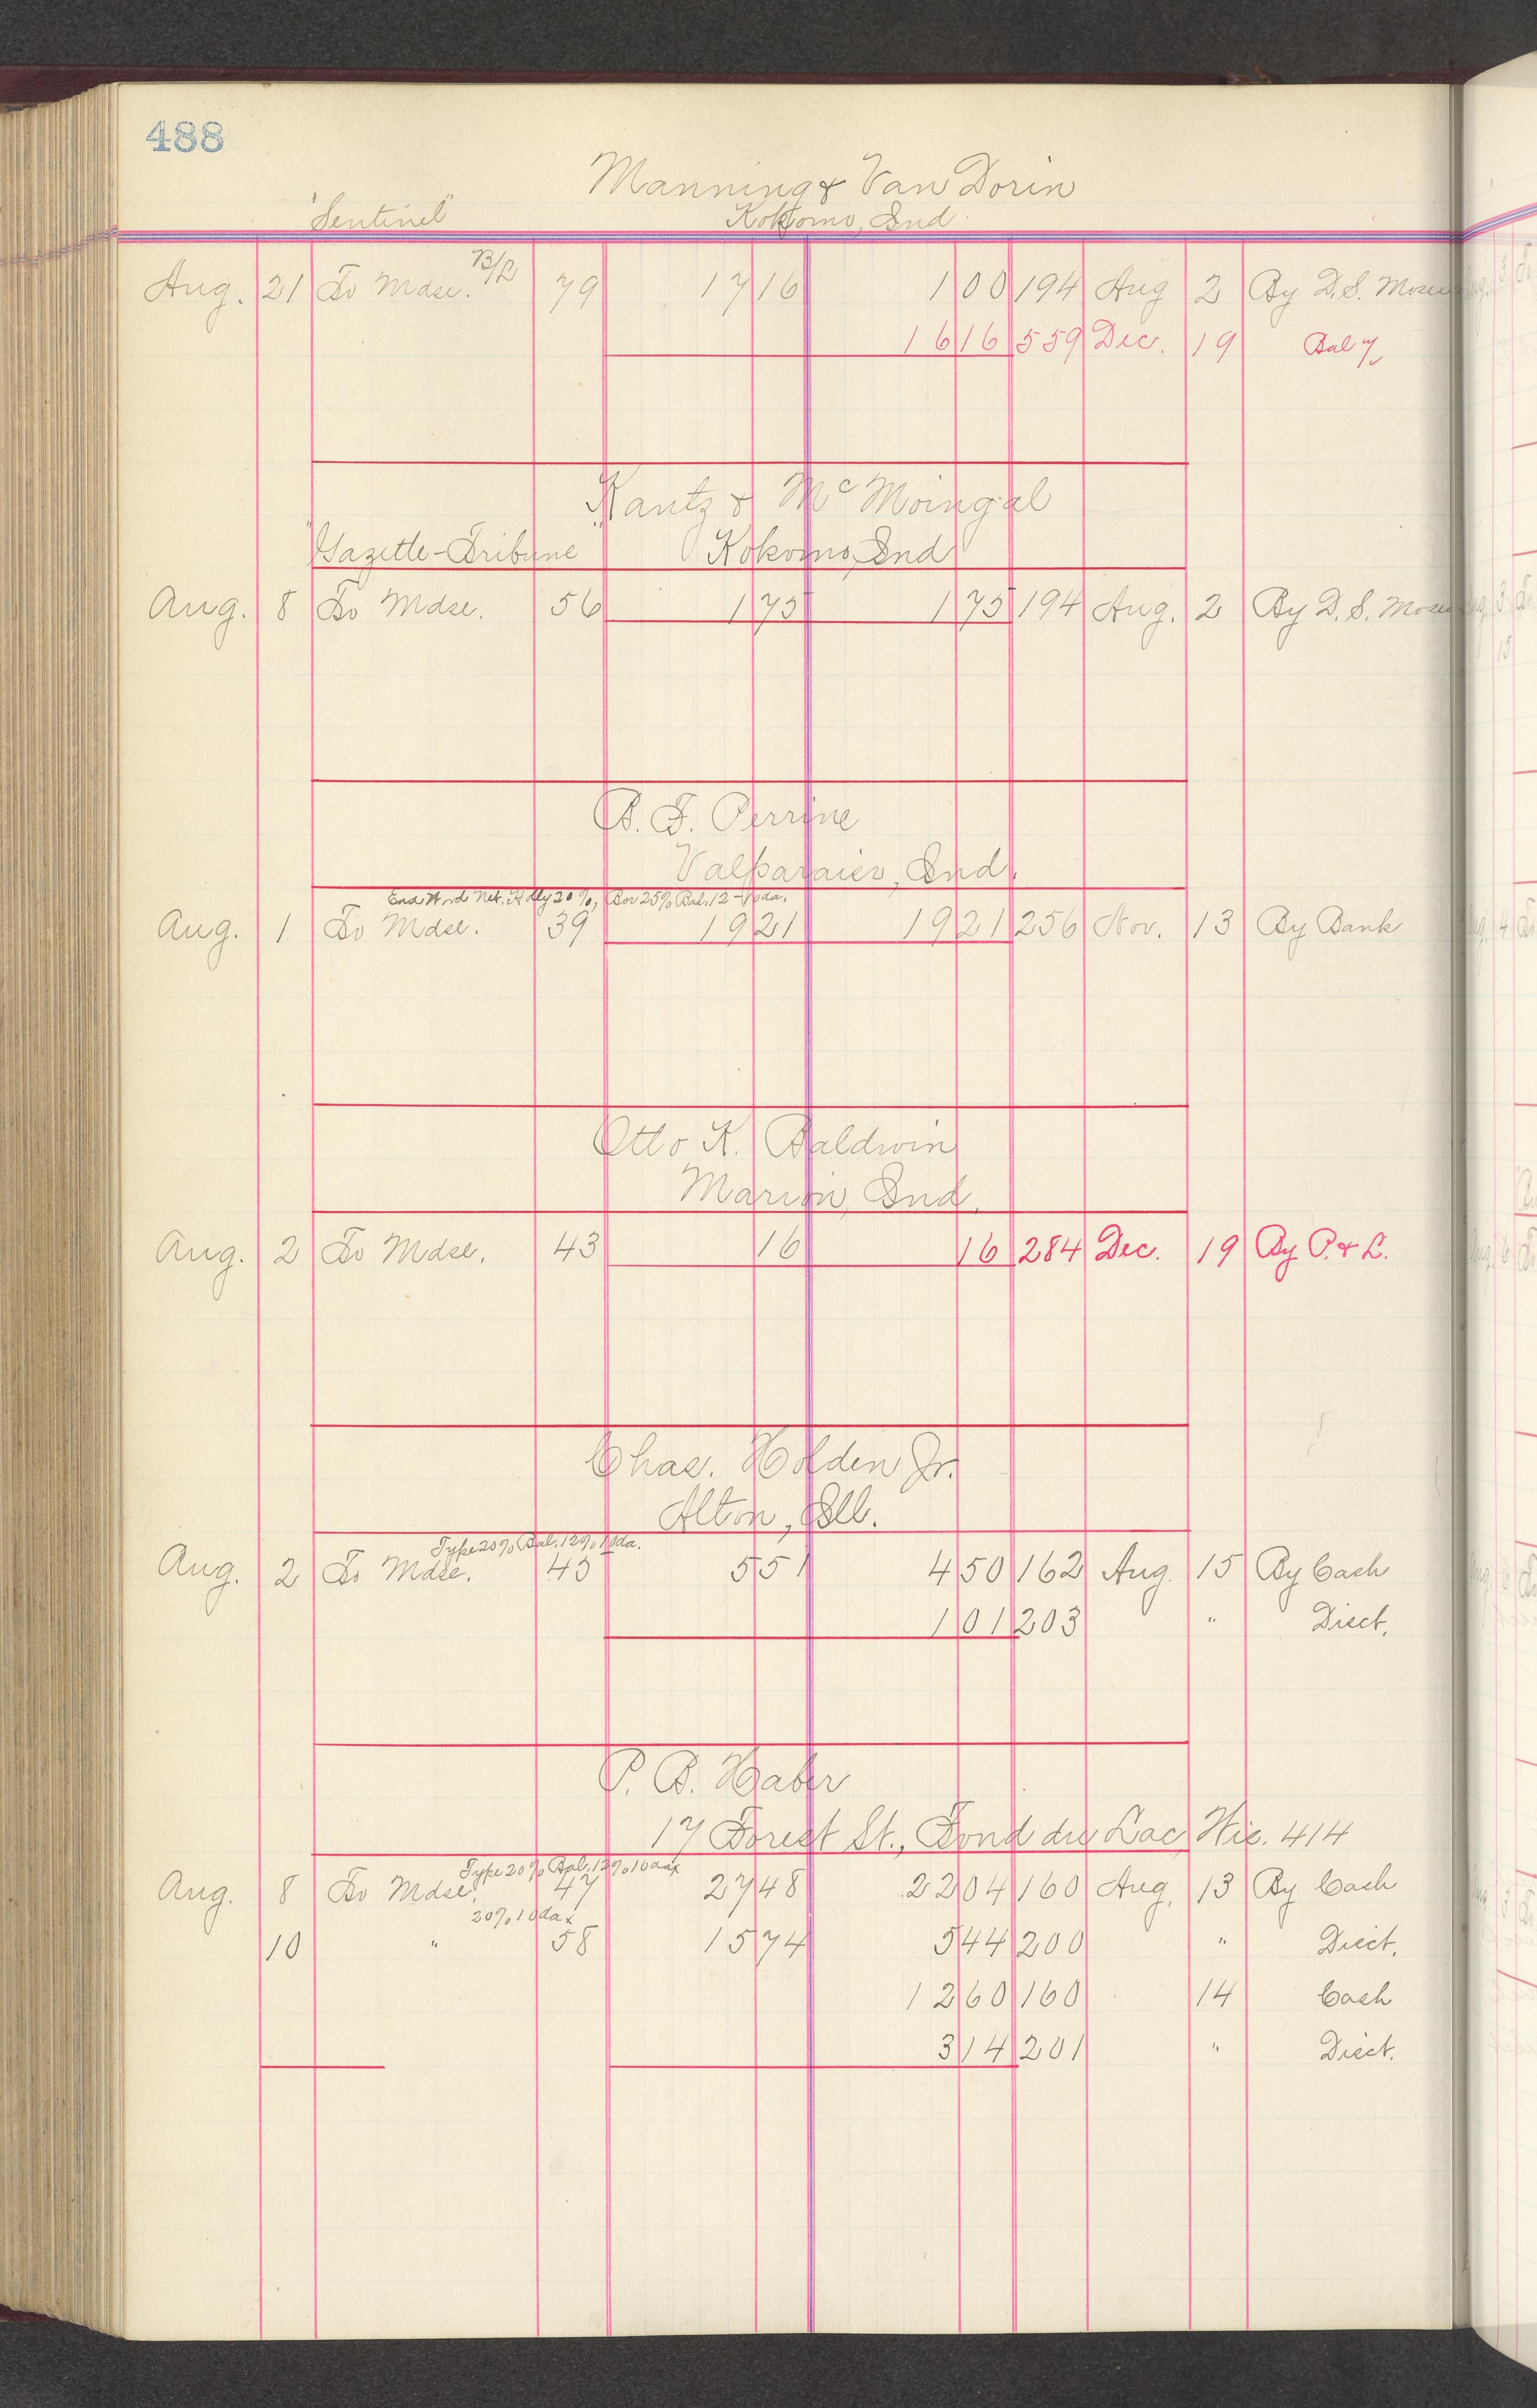 488
Manning & Van Dorin
"Sentinel" Kokomo, Ind.
Aug. 21 To Mdse. B/L 79 17 16 1 00 194 Aug 2 By D. S. Moses
16 16 559 Dec. 19 Bal
Kautz & McMoingal
"Gazette-Tribune" Kokomo, Ind
Aug. 8 To Mdse. 56 1 75 1 75 194 Aug. 2 By D. S. Moses
B. F. Perrine
Valparaiso, Ind.
End Wood Net. Holly 20%, Bor 25% Bal. 12 - 10 da.
Aug. 1 To Mdse. 39 19 21 19 21 256 Nov. 13 By Bank
Otto K. Baldwin
Marion, Ind.
Aug. 2 To Mdse. 43 16 16 284 Dec. 19 By P. & L.
Chas. Holden Jr.
Alton, Ill.
Type 20% Bal. 12% 10 da.
Aug. 2 To Mdse. 45 5 51 4 50 162 Aug. 15 By Cash
1 01 203 " Disct.
P. B. Haber
17 Forest St., Fond du Lac, Wis. 414
Type 20% Bal. 12% 10 dax
Aug. 8 To Mdse. 47 27 48 22 04 160 Aug. 13 By Cash
20% 10 dax
10 " 58 15 74 5 44 200 " Disct.
12 60 160 14 Cash
3 14 201 " Disct.